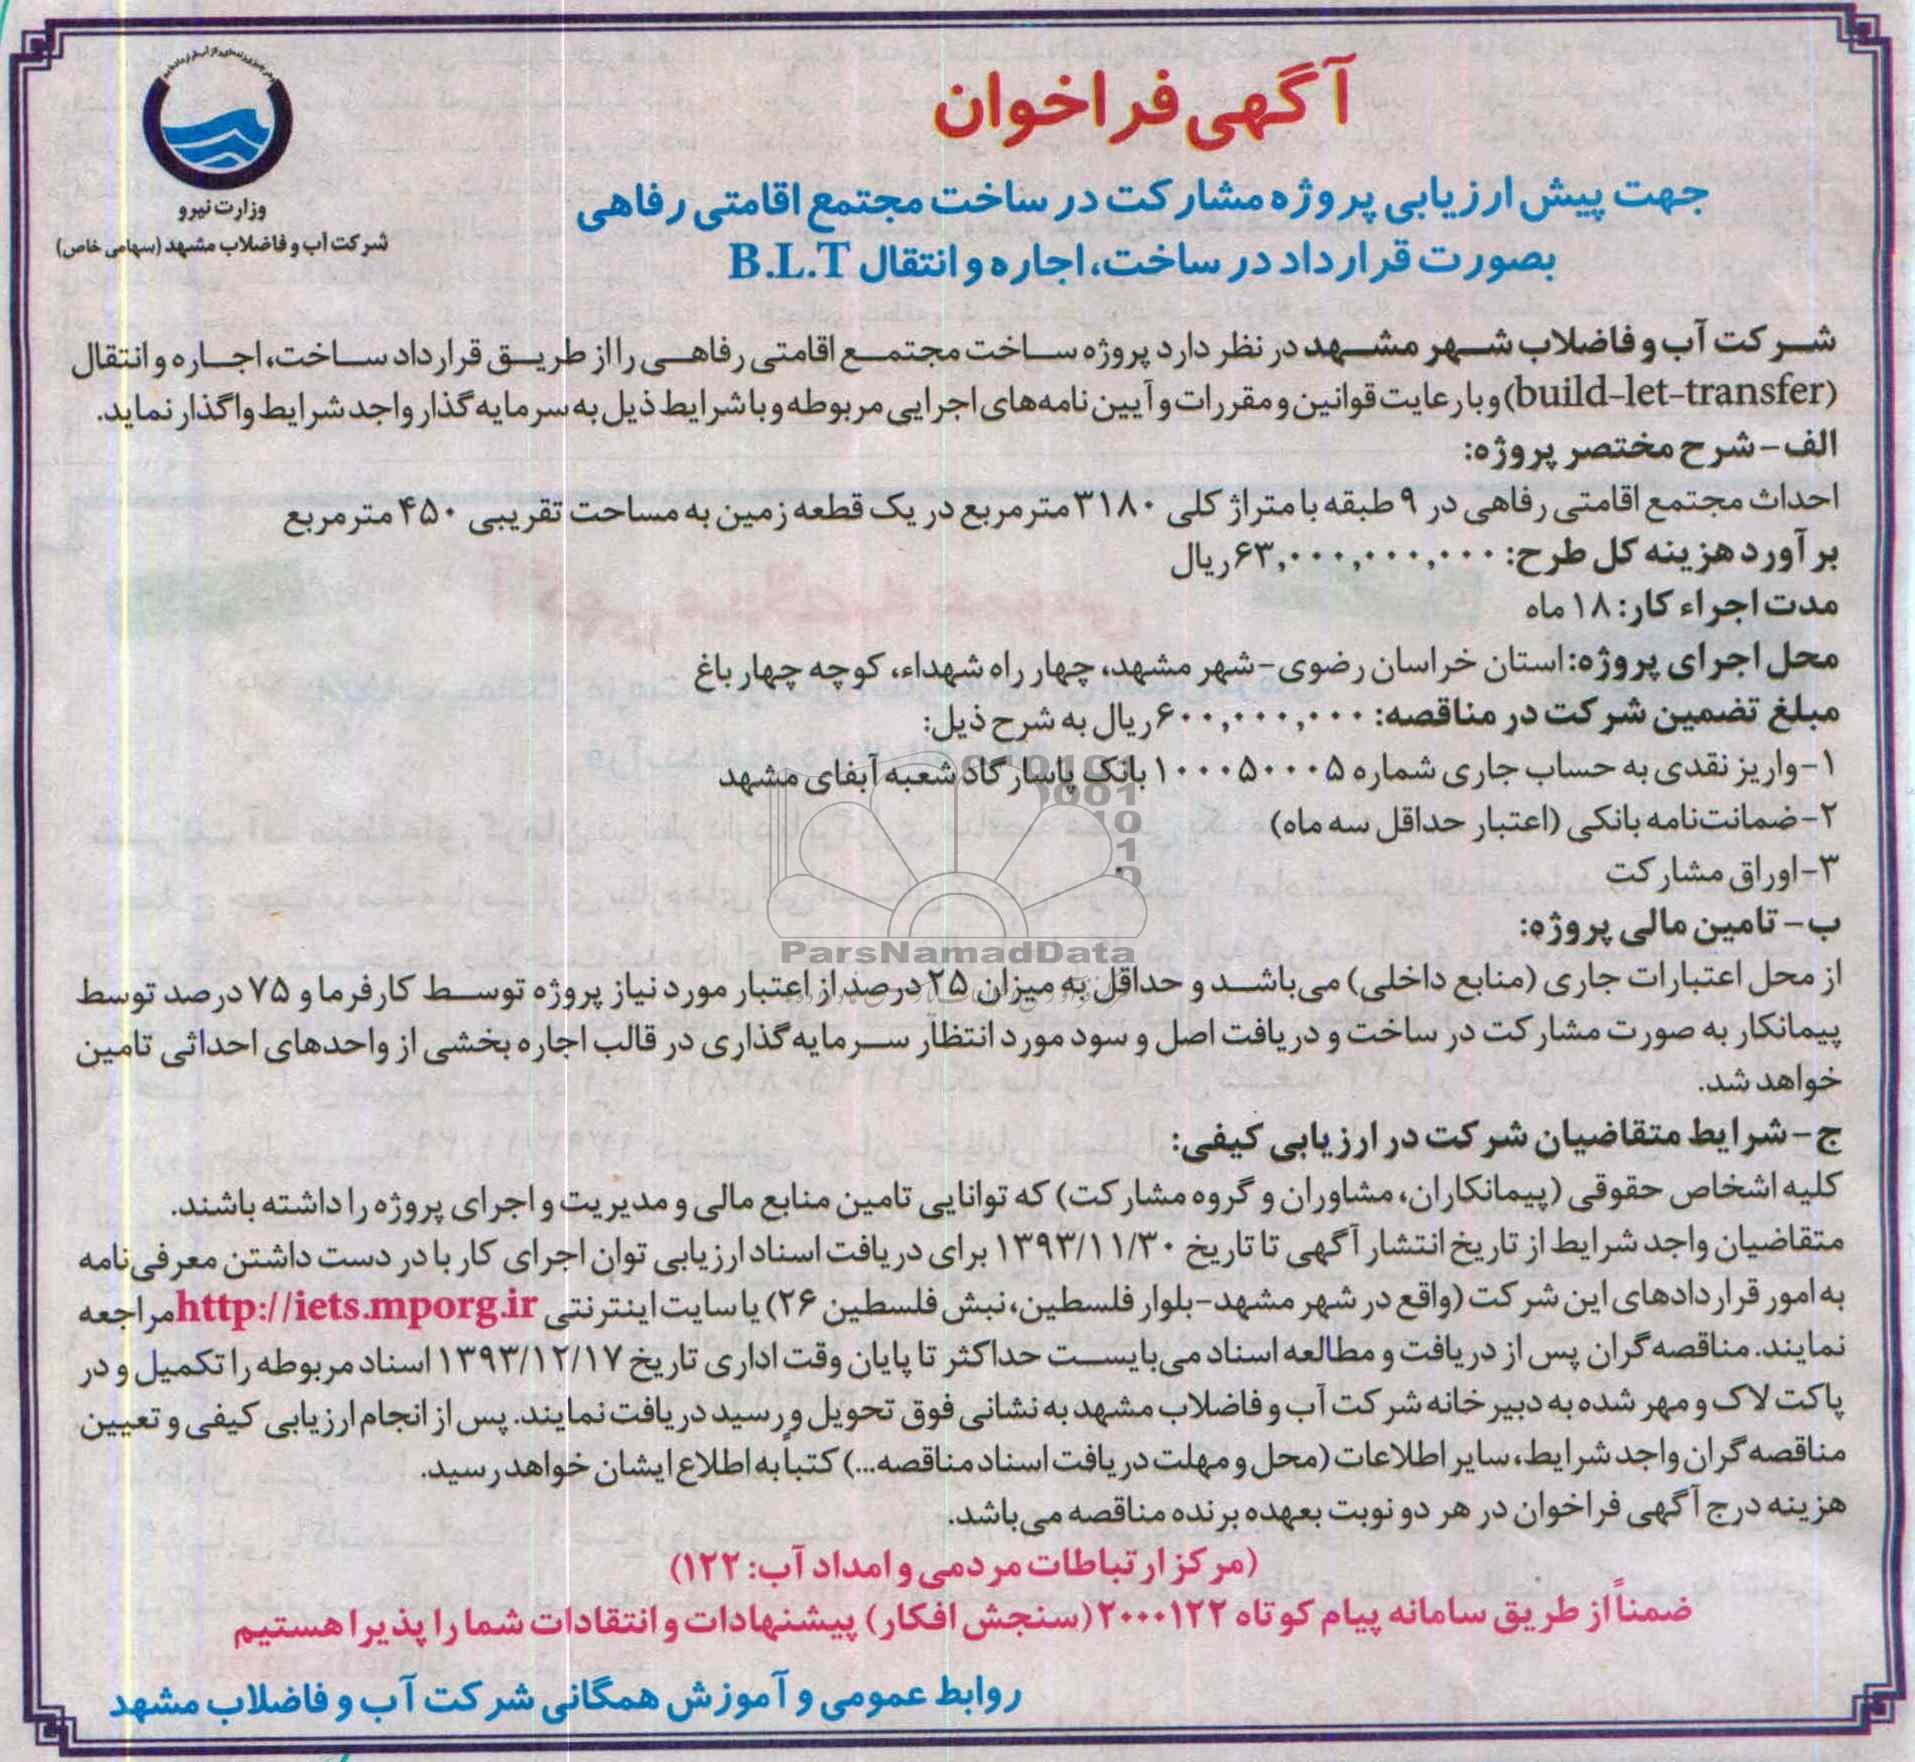 آگهی فراخوان
جهت پیش ارزیابی پروژه مشارکت در ساخت مجتمع اقامتی رفاهی
بصورت قرارداد در ساخت، اجاره و انتقال B.L.T
وزارت نیرو
شرکت آب و فاضلاب مشهد (سهامی خاص)
شرکت آب و فاضلاب شهر مشهد در نظر دارد پروژه ساخت مجتمع اقامتی رفاهی را از طریق قرارداد ساخت، اجاره و انتقال
(build-let-transfer) و با رعایت قوانین و مقررات و آیین نامه‌های اجرایی مربوطه و با شرایط ذیل به سرمایه گذار واجد شرایط واگذار نماید.
الف- شرح مختصر پروژه:
احداث مجتمع اقامتی رفاهی در ۹ طبقه با متراژ کلی ۳۱۸۰ مترمربع در یک قطعه زمین به مساحت تقریبی ۴۵۰ مترمربع
برآورد هزینه کل طرح: ۶۳,۰۰۰,۰۰۰,۰۰۰ ریال
مدت اجراء کار: ۱۸ ماه
محل اجرای پروژه: استان خراسان رضوی- شهر مشهد، چهار راه شهداء، کوچه چهار باغ
مبلغ تضمین شرکت در مناقصه: ۶۰۰,۰۰۰,۰۰۰ ریال به شرح ذیل:
۱- واریز نقدی به حساب جاری شماره ۱۰۰۰۵۰۰۰۵ بانک پاسارگاد شعبه آبفای مشهد
۲- ضمانت‌نامه بانکی (اعتبار حداقل سه ماه)
۳- اوراق مشارکت
ParsNamadData
ب- تامین مالی پروژه:
از محل اعتبارات جاری (منابع داخلی) می‌باشد و حداقل به میزان ۲۵ درصد از اعتبار مورد نیاز پروژه توسط کارفرما و ۷۵ درصد توسط
پیمانکار به صورت مشارکت در ساخت و دریافت اصل و سود مورد انتظار سرمایه گذاری در قالب اجاره بخشی از واحدهای احداثی تامین
خواهد شد.
ج- شرایط متقاضیان شرکت در ارزیابی کیفی:
کلیه اشخاص حقوقی (پیمانکاران، مشاوران و گروه مشارکت) که توانایی تامین منابع مالی و مدیریت و اجرای پروژه را داشته باشند.
متقاضیان واجد شرایط از تاریخ انتشار آگهی تا تاریخ ۱۳۹۳/۱۱/۳۰ برای دریافت اسناد ارزیابی توان اجرای کار با در دست داشتن معرفی نامه
به امور قراردادهای این شرکت (واقع در شهر مشهد- بلوار فلسطین، نبش فلسطین ۲۶) یا سایت اینترنتی http://iets.mporg.ir مراجعه
نمایند. مناقصه گران پس از دریافت و مطالعه اسناد می‌بایست حداکثر تا پایان وقت اداری تاریخ ۱۳۹۳/۱۲/۱۷ اسناد مربوطه را تکمیل و در
پاکت لاک و مهر شده به دبیرخانه شرکت آب و فاضلاب مشهد به نشانی فوق تحویل و رسید دریافت نمایند. پس از انجام ارزیابی کیفی و تعیین
مناقصه گران واجد شرایط، سایر اطلاعات (محل و مهلت دریافت اسناد مناقصه...) کتباً به اطلاع ایشان خواهد رسید.
هزینه درج آگهی فراخوان در هر دو نوبت بعهده برنده مناقصه می‌باشد.
(مرکز ارتباطات مردمی و امداد آب: ۱۲۲)
ضمناً از طریق سامانه پیام کوتاه ۲۰۰۰۱۲۲ (سنجش افکار) پیشنهادات و انتقادات شما را پذیرا هستیم
روابط عمومی و آموزش همگانی شرکت آب و فاضلاب مشهد